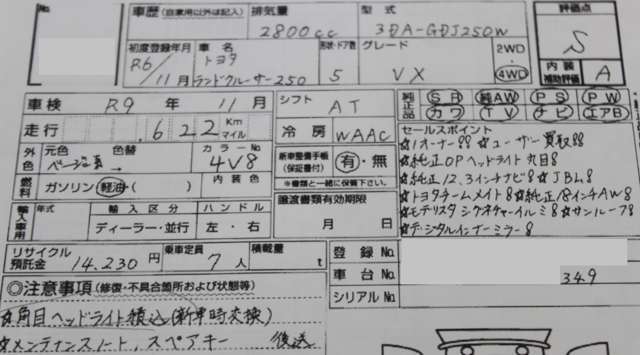 No.
車歴 (自家用以外は記入)
排気量 2800cc
型式 3DA-GDJ250W
評価点 S
初度登録年月 R6/11月
車名 トヨタ ランドクルーザー250
形状・ドア数 5
グレード VX
2WD ・ 4WD
内装補助評価 A
車検 R9年 11月
シフト AT
純正品 SR 純AW PS PW
カワ TV ナビ エアB
走行 .622 Km マイル
冷房 WAAC
セールスポイント
☆1オーナー8☆ユーザー買取8
☆純正OPヘッドライト丸目8
☆純正12.3インチナビ8☆JBL8
☆トヨタチームメイト8☆純正18インチAW8
☆モデリスタシグネチャーイルミ8☆サンルーフ8
☆デジタルインナーミラー8
外色 元色 ベージュ 色替
カラーNo. 4V8
新車整備手帳 (保証書付) 有・無
※書類と一緒に保管下さい。
燃料 ガソリン・軽油・( )
内装色
譲渡書類有効期限
月 日
輸入車用 年式 輸入区分 ハンドル
ディーラー・並行 左・右
リサイクル預託金 14.230円
乗車定員 7人
積載量 t
登録No.
車台No. 349
シリアルNo.
◎注意事項 (修復・不具合箇所および状態等)
☆角目ヘッドライト積込(新車時交換)
☆メンテナンスノート、スペアキー 後送